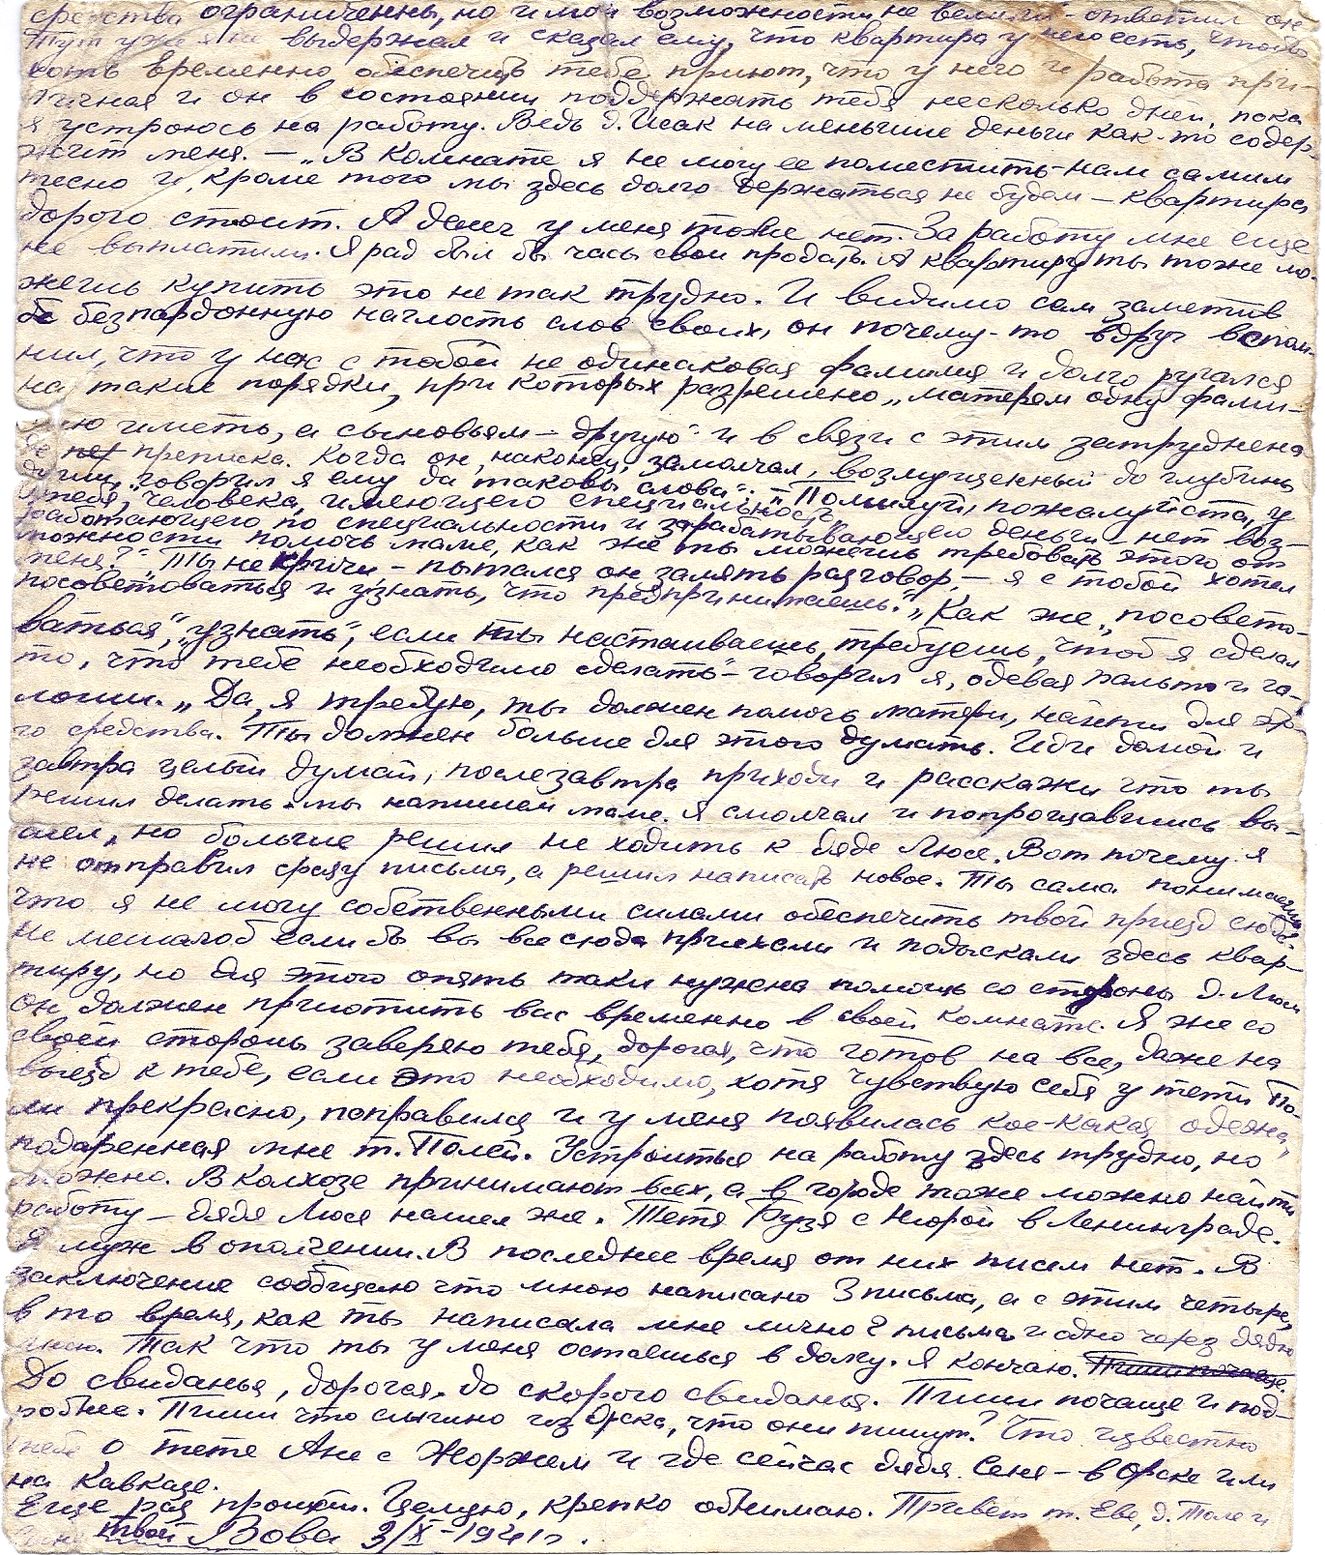 средства ограниченны, но и мои возможности не велики" - ответил он
Тут уже я не выдержал и сказал ему, что квартира у него есть, чтобы
хоть временно обеспечить тебе приют, что у него и работа при-
личная и он в состоянии поддержать тебя несколько дней, пока
я устроюсь на работу. Ведь д. Исак на меньшие деньги как-то содер-
жит меня. — „В комнате я не могу ее поместить - нам самим
тесно и, кроме того мы здесь долго держаться не будем — квартира
дорого стоит. А денег у меня тоже нет. За работу мне еще
не выплатили. Я рад был бы часы свои продать. А квартиру ты тоже мо-
жешь купить это не так трудно. И видимо сам заметив
безпардонную наглость слов своих, он почему-то вдруг вспом-
нил, что у нас с тобой не одинаковая фамилия и долго ругался
на такие порядки, при которых разрешено „матерям одну фами-
лию иметь, а сыновьям — другую" и в связи с этим затруднена
де преписка. Когда он, наконец, замолчал, возмущенный до глубины
души, говорил я ему да таковы слова": „Помилуй, пожалуйста, у
тебя, человека, имеющего специальность,
работающего по специальности и зарабатывающего деньги — нет воз-
можности помочь маме, как же ты можешь требовать этого от
меня?" „Ты не кричи — пытался он замять разговор, — я с тобой хотел
посоветоваться и узнать, что предпринимаешь." „Как же „посовето-
ваться", „узнать", если ты настаиваешь, требуешь, чтоб я сделал
то, что тебе необходимо сделать" — говорил я, одевая пальто и га-
лоши. „Да, я требую, ты должен помочь матери, найти для это-
го средства. Ты должен больше для этого думать. Иди домой и
завтра целый думай, послезавтра приходи и расскажи что ты
решил делать - мы напишем маме. Я смолчал и попрощавшись вы-
шел, но больше решил не ходить к дяде Люсе. Вот почему я
не отправил сразу письма, а решил написать новое. Ты сама понимаешь
что я не могу собственными силами обеспечить твой приезд сюда.
Не мешалоб если бы вы все сюда приехали и подыскали здесь квар-
тиру, но для этого опять таки нужна помощь со стороны д. Люси
он должен приютить вас временно в своей комнате. Я же со
своей стороны заверяю тебя, дорогая, что готов на все, даже на
выезд к тебе, если это необходимо, хотя чувствую себя у тети По-
ли прекрасно, поправился и у меня появилась кое-какая одежа,
подаренная мне т. Полей. Устроиться на работу здесь трудно, но
можно. В колхозе принимают всех, а в городе тоже можно найти
работу — дядя Люся нашел же. Тетя Рузя с Нюрой в Ленинграде.
Я муж в ополчении. В последнее время от них писем нет. В
заключение сообщаю что мною написано 3 письма, а с этим четыре,
в то время, как ты написала мне лично 2 письма и одно через дядю
Люсю. Так что ты у меня остаешься в долгу. Я кончаю. Пиши почаще.
До свиданья, дорогая, до скорого свиданья. Пиши почаще и под-
робнее. Пиши что слышно из Орска, что они пишут? Что известно
тебе о тете Ане с Жоржем и где сейчас дядя Сеня — в Орске или
на Кавказе.
Еще раз прощай. Целую, крепко обнимаю. Привет т. Еве, д. Толе и
твой Вова 3/X - 1941 г.